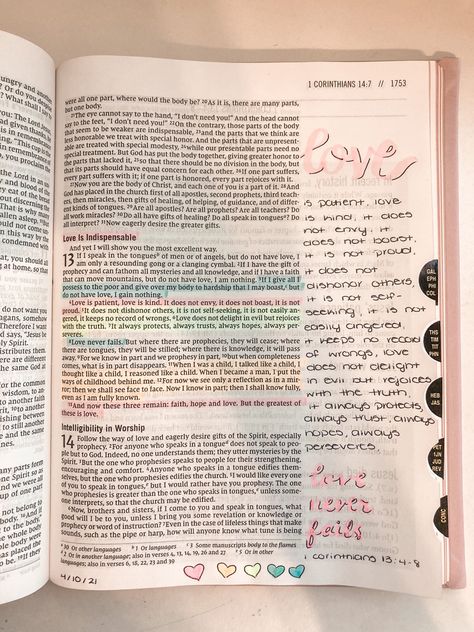 1 CORINTHIANS 14:7 // 1753
were all one part, where would the body be? 20As it is, there are many parts,
but one body.
21The eye cannot say to the hand, "I don't need you!" And the head cannot
say to the feet, "I don't need you!" 22On the contrary, those parts of the body
that seem to be weaker are indispensable, 23and the parts that we think are
less honorable we treat with special honor. And the parts that are unpresent-
able are treated with special modesty, 24while our presentable parts need no
special treatment. But God has put the body together, giving greater honor to
the parts that lacked it, 25so that there should be no division in the body, but
that its parts should have equal concern for each other. 26If one part suffers,
every part suffers with it; if one part is honored, every part rejoices with it.
27Now you are the body of Christ, and each one of you is a part of it. 28And
God has placed in the church first of all apostles, second prophets, third teach-
ers, then miracles, then gifts of healing, of helping, of guidance, and of differ-
ent kinds of tongues. 29Are all apostles? Are all prophets? Are all teachers? Do
all work miracles? 30Do all have gifts of healing? Do all speak in tongues? Do
all interpret? 31Now eagerly desire the greater gifts.
Love Is Indispensable
And yet I will show you the most excellent way.
13 If I speak in the tongues of men or of angels, but do not have love, I
am only a resounding gong or a clanging cymbal. 2If I have the gift of
prophecy and can fathom all mysteries and all knowledge, and if I have a faith
that can move mountains, but do not have love, I am nothing. 3If I give all I
possess to the poor and give over my body to hardship that I may boast, but I
do not have love, I gain nothing.
4Love is patient, love is kind. It does not envy, it does not boast, it is not
proud. 5It does not dishonor others, it is not self-seeking, it is not easily an-
gered, it keeps no record of wrongs. 6Love does not delight in evil but rejoices
with the truth. 7It always protects, always trusts, always hopes, always per-
severes.
8Love never fails. But where there are prophecies, they will cease; where
there are tongues, they will be stilled; where there is knowledge, it will pass
away. 9For we know in part and we prophesy in part, 10but when completeness
comes, what is in part disappears. 11When I was a child, I talked like a child, I
thought like a child, I reasoned like a child. When I became a man, I put the
ways of childhood behind me. 12For now we see only a reflection as in a mir-
ror; then we shall see face to face. Now I know in part; then I shall know fully,
even as I am fully known.
13And now these three remain: faith, hope and love. But the greatest of
these is love.
Intelligibility in Worship
14 Follow the way of love and eagerly desire gifts of the Spirit, especially
prophecy. 2For anyone who speaks in a tongue does not speak to peo-
ple but to God. Indeed, no one understands them; they utter mysteries by the
Spirit. 3But the one who prophesies speaks to people for their strengthening,
encouraging and comfort. 4Anyone who speaks in a tongue edifies them-
selves, but the one who prophesies edifies the church. 5I would like every one
of you to speak in tongues, but I would rather have you prophesy. The one
who prophesies is greater than the one who speaks in tongues, unless some-
one interprets, so that the church may be edified.
6Now, brothers and sisters, if I come to you and speak in tongues, what
good will I be to you, unless I bring you some revelation or knowledge or
prophecy or word of instruction? 7Even in the case of lifeless things that make
sounds, such as the pipe or harp, how will anyone know what tune is being
30 Or other languages 1 Or languages 3 Some manuscripts body to the flames
2 Or in another language; also in verses 4, 13, 14, 19, 26 and 27 5 Or in other
languages; also in verses 6, 18, 22, 23 and 39
4/10/21
love
is patient, love
is kind. it does
not envy, it
does not boast,
it is not proud.
it does not
dishonor others
it is not self-
seeking, it is not
easily angered,
it keeps no record
of wrongs, love
does not delight
in evil but rejoices
with the truth,
it always protects,
always trust, always
hopes, always
perseveres.
love
never
fails
1 corinthians 13:4-8
GAL
EPH
PHI
COL
THS
TIM
TIT
PHN
HEB
JAS
PET
JN
JUD
REV
CONC